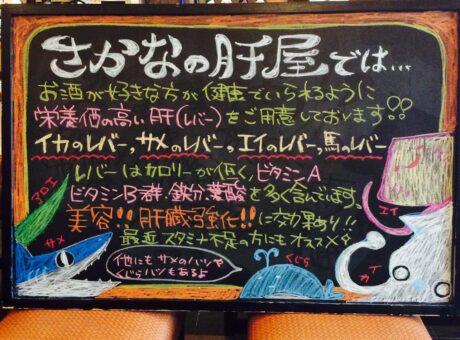 さかなの肝屋では…
お酒が好きな方が健康でいられるように
栄養価の高い肝(レバー)をご用意しております!!
イカのレバー,サメのレバー,エイのレバー,馬のレバー
レバーはカロリーが低く,ビタミンA
ビタミンB群・鉄分・葉酸を多く含んでます。
美容!!肝臓強化!!に効果あり!!
最近スタミナ不足の方にもオススメ
他にもサメのハツや
くじらハツもあるよ
アロエ
サメ
くじら
エイ
イカ